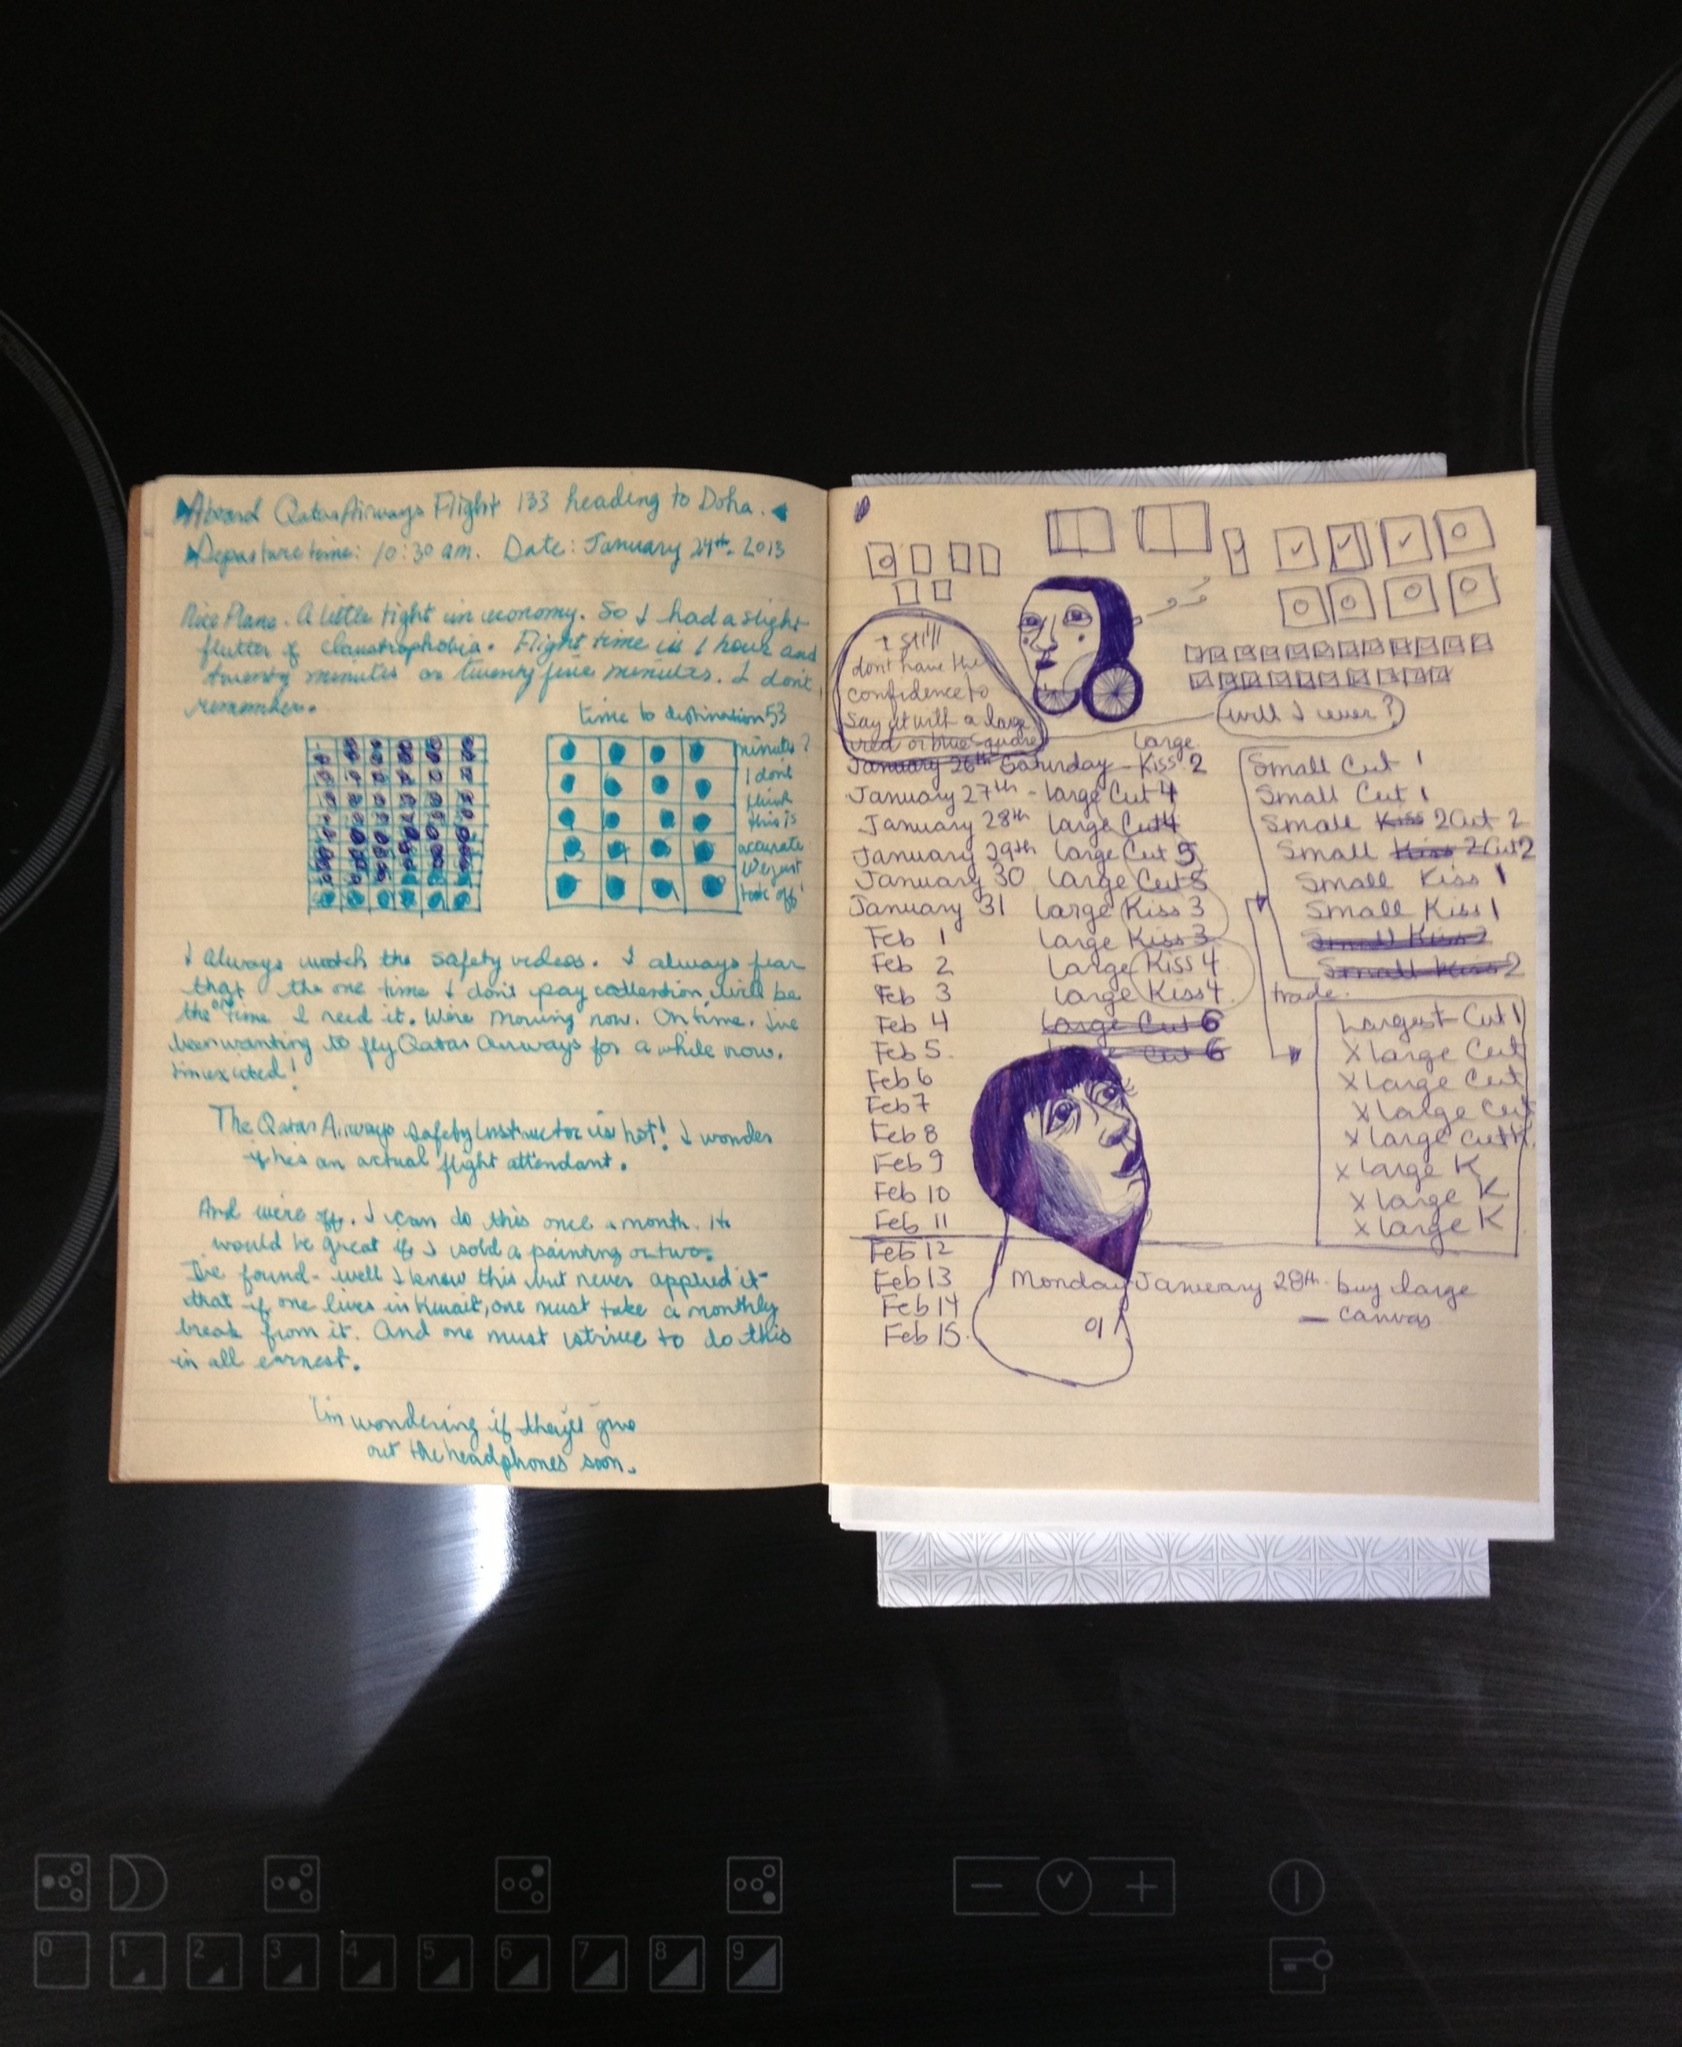 Aboard Qatar Airways Flight 133 heading to Doha.
Departure time: 10:30 am. Date: January 24th. 2013
Nice Plane. A little tight in economy. So I had a slight
flutter of claustrophobia. Flight time is 1 hour and
twenty minutes or twenty five minutes. I don't
remember.
time to destination 53
minutes?
I don't
think
this is
accurate
We just
took off!
I always watch the safety videos. I always fear
that the one time I don't pay attention, will be
the one time I need it. We're moving now. On time. I've
been wanting to fly Qatar Airways for a while now.
I'm excited!
The Qatar Airways safety instructor is hot! I wonder
if he's an actual flight attendant.
And we're off. I can do this once a month. It
would be great if I sold a painting or two.
I've found - well I knew this but never applied it -
that if one lives in Kuwait, one must take a monthly
break from it. And one must strive to do this
in all earnest.
I'm wondering if they'll give
out the headphones soon.
I still
dont have the
confidence to
say it with a large
red or blue square
will I ever?
large
January 26th Saturday - Kiss 2
January 27th - large Cut 4
January 28th large Cut 4
January 29th large Cut 5
January 30 large Cut 5
January 31 large Kiss 3
Feb 1 large Kiss 3
Feb 2 large Kiss 4
Feb 3 large Kiss 4
Feb 4 large Cut 6
Feb 5. Cut 6
Feb 6
Feb 7
Feb 8
Feb 9
Feb 10
Feb 11
Feb 12
Feb 13
Feb 14
Feb 15.
Small Cut 1
Small Cut 1
Small Kiss 2 Cut 2
Small Kiss 2 Cut 2
Small Kiss 1
Small Kiss 1
Small Kiss 2
Small Kiss 2
trade.
Largest Cut 1
X large Cut
X large Cut
X large Cut
X large Cut
X large K
X large K
X large K
Monday January 28th. buy large
- canvas
0
1
2
3
4
5
6
7
8
9